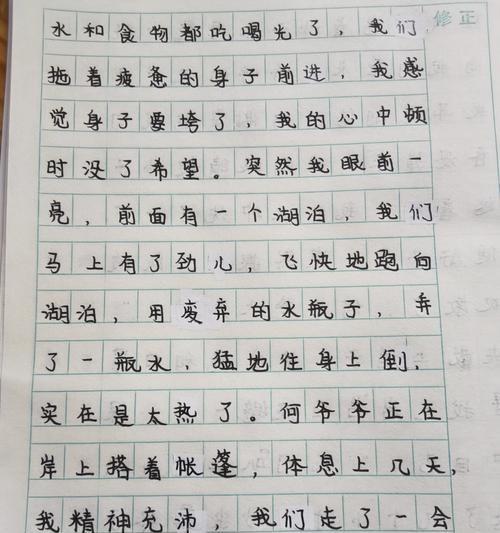 修正
水和食物都吃喝光了，我们
拖着疲惫的身子前进，我感
觉身子要垮了，我的心中顿
时没了希望。突然我眼前一
亮，前面有一个湖泊，我们
马上有了劲儿，飞快地跑向
湖泊，用废弃的水瓶子，弄
了一瓶水，猛地往身上倒，
实在是太热了。何爷爷正在
岸上搭着帐篷，体息上几天，
我精神充沛，我们走了一会